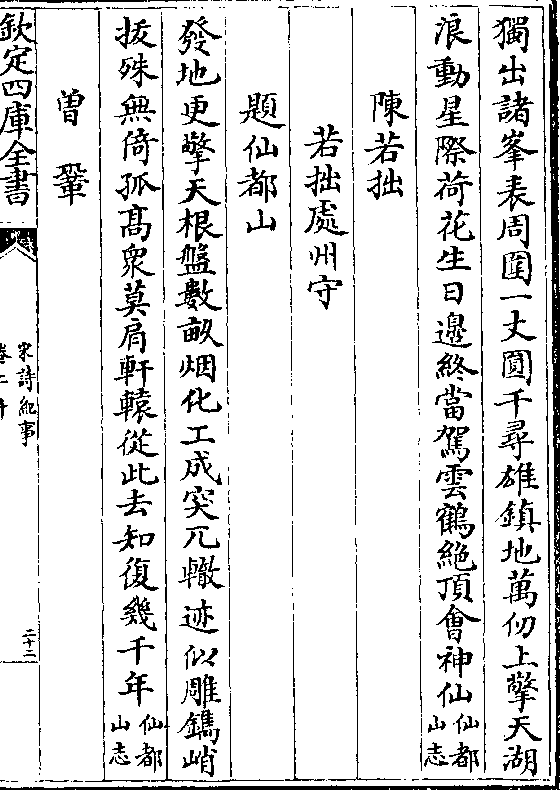 獨出諸峯表周圍一丈圓千尋雄鎮地萬仞上擎天湖
浪動星際荷花生日邊終當駕雲鶴絶頂會神仙仙都
山志
陳若拙
若拙處州守
題仙都山
發地更擎天根盤數畝烟化工成突兀轍迹似雕鐫峭
拔殊無倚孤高衆莫肩軒轅從此去知復幾千年仙都
山志
曾鞏
欽定四庫全書
宋詩紀事
二十二